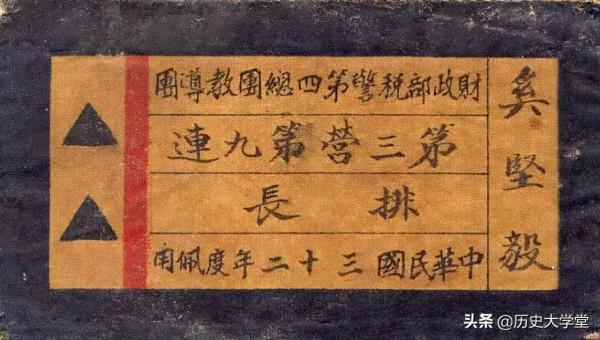 堅毅
財政部税警第四總團教導團
第三營第九連
排長
中華民國三十二年度佩用
头条 @历史大学堂